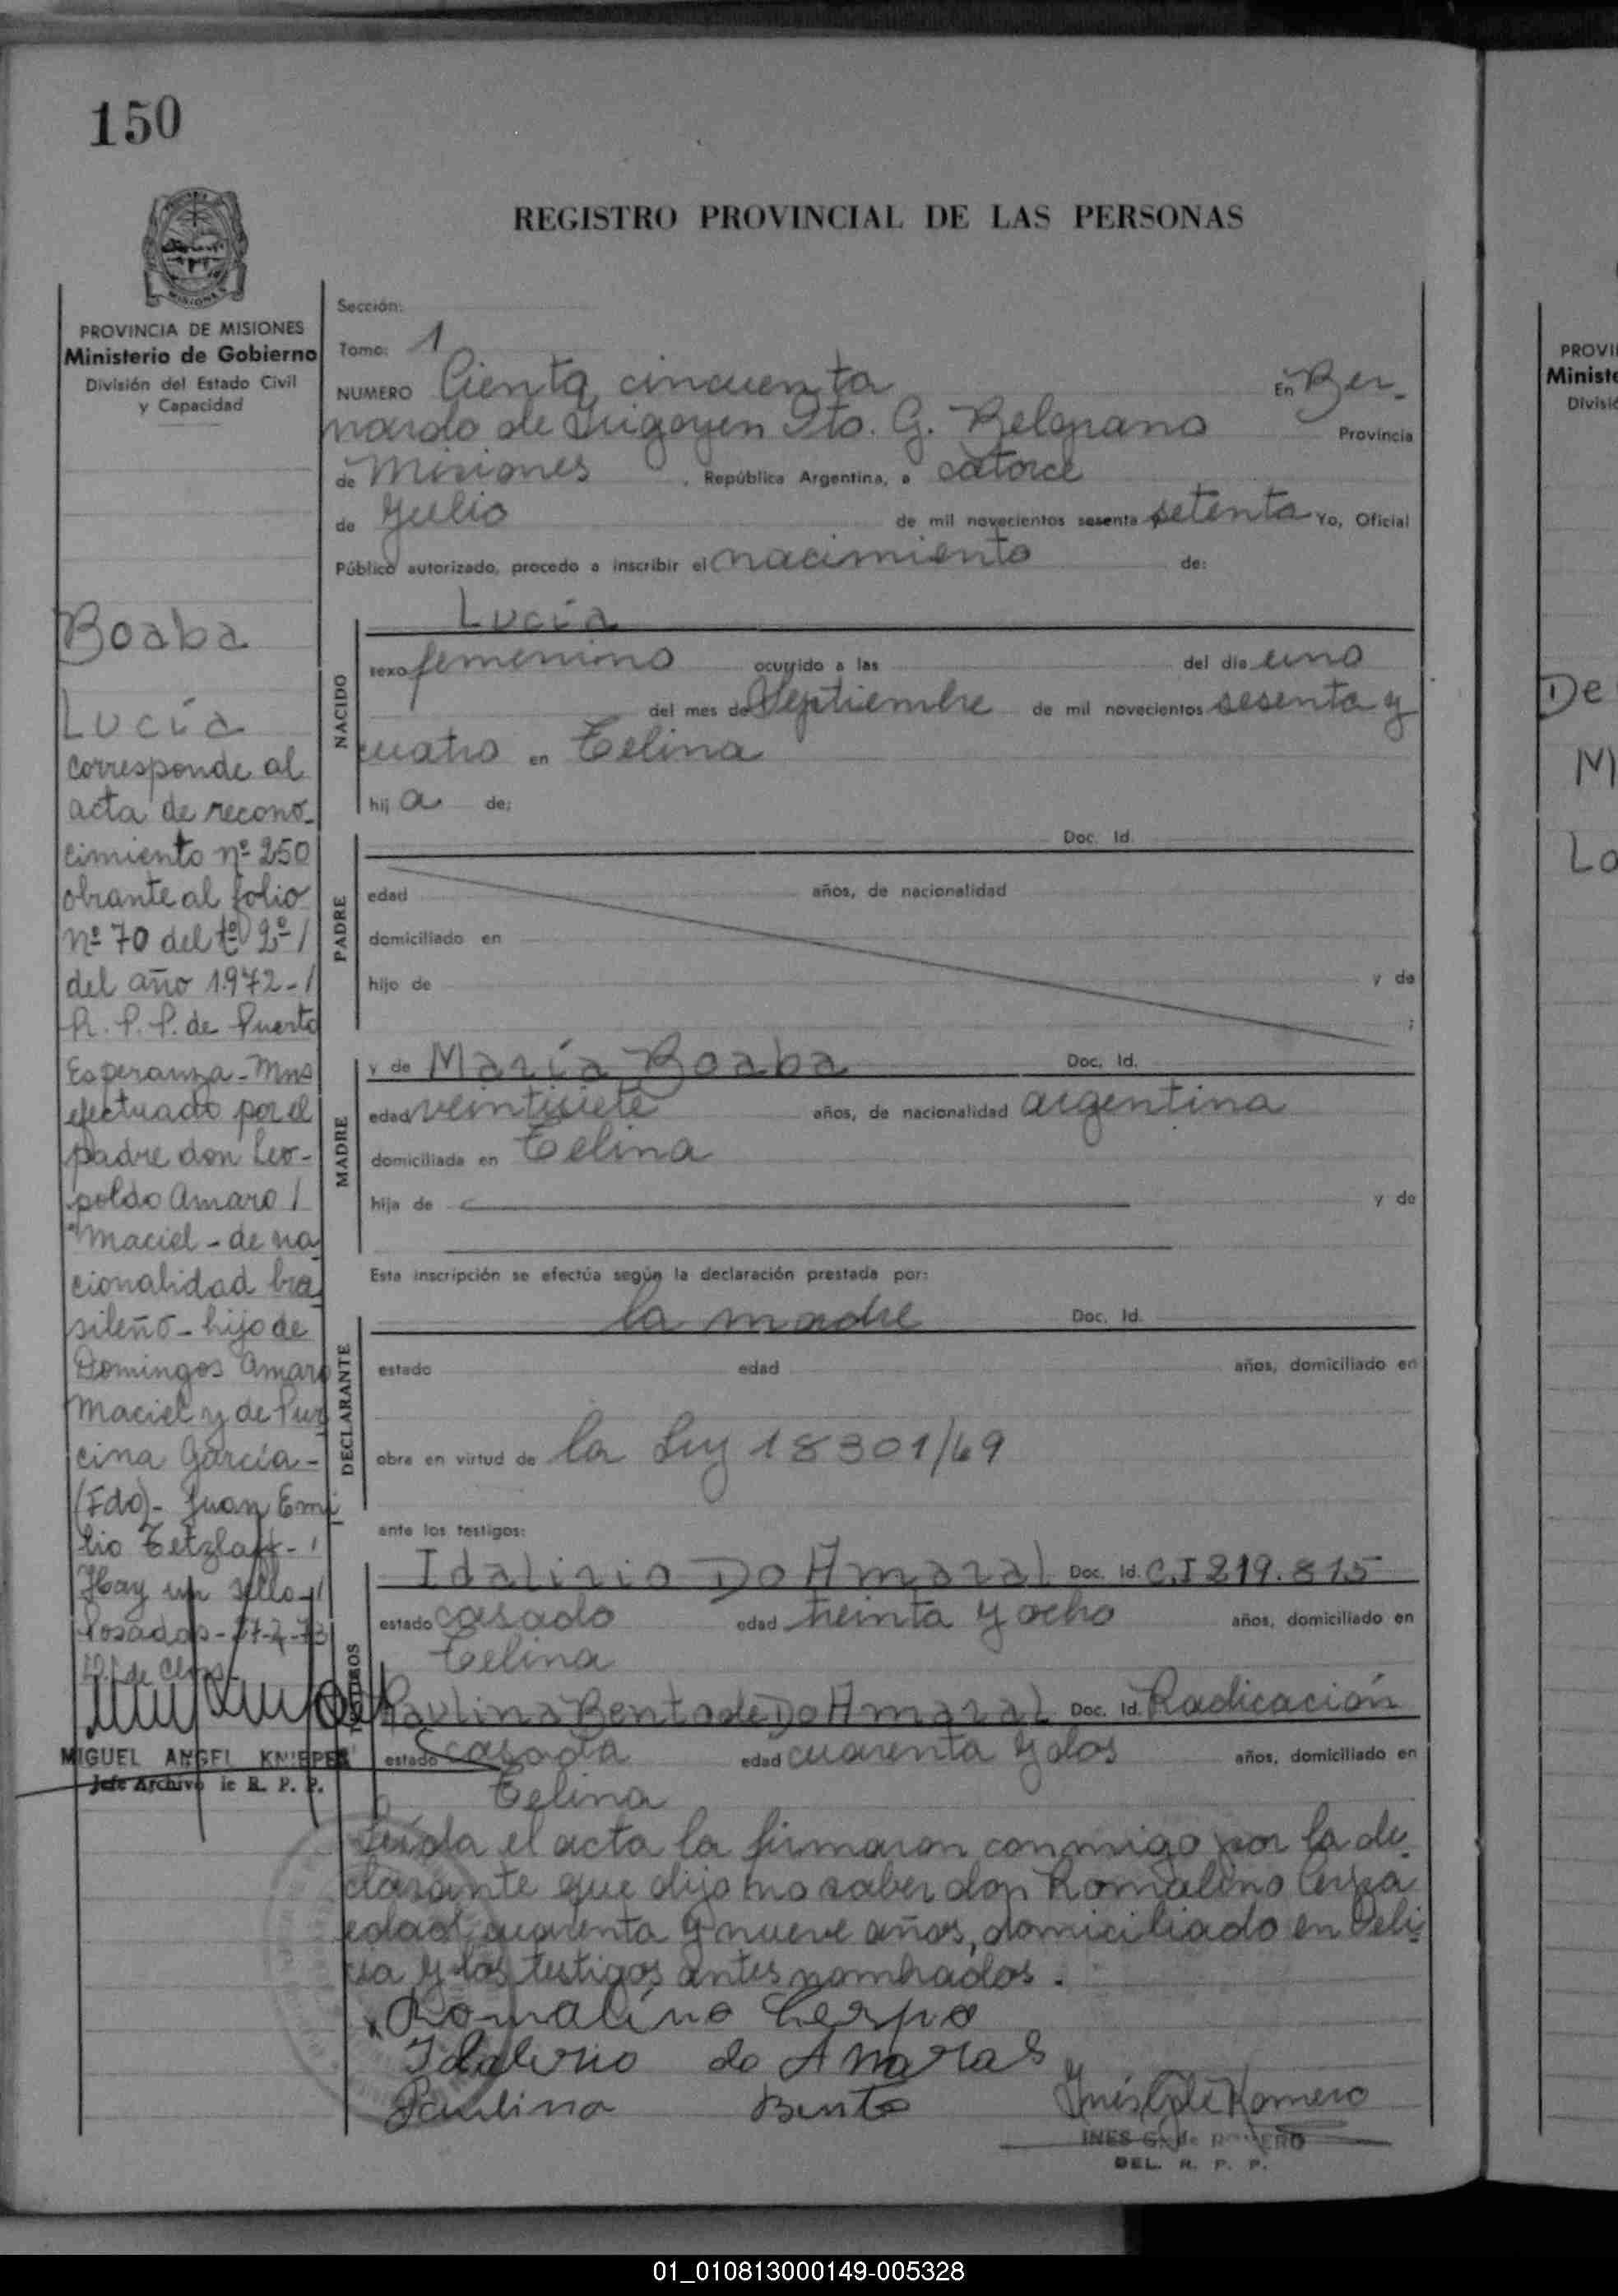 150
REGISTRO PROVINCIAL DE LAS PERSONAS
MISIONES
PROVINCIA DE MISIONES
Ministerio de Gobierno
División del Estado Civil
y Capacidad
Boaba
Lucía
corresponde al
acta de recono-
cimiento nº 250
obrante al folio
nº 70 del tº 2º /
del año 1972 - /
R. P. P. de Puerto
Esperanza - Mns
efectuado por el
padre don Leo-
poldo Amaro /
Maciel - de na
cionalidad bra
sileño - hijo de
Domingos Amaro
Maciel y de Pur
cina García -
(Fdo) - Juan Emi
lio Tetzlaff - /
Hay un sello - /
Posadas - 27-2-73
MIGUEL ANGEL KNIEPER
Jefe Archivo de R. P. P.
Sección:
Tomo: 1
NUMERO Ciento cincuenta En Ber-
nardo de Irigoyen Dto. G. Belgrano Provincia
de Misiones, República Argentina, a catorce
de Julio de mil novecientos sesenta setenta Yo, Oficial
Público autorizado, procedo a inscribir el nacimiento de:
NACIDO
Lucía
sexo femenino ocurrido a las del día uno
del mes de Septiembre de mil novecientos sesenta y
cuatro en Celina
hij a de:
PADRE
Doc. Id.
edad años, de nacionalidad
domiciliado en
hijo de y de
;
MADRE
y de María Boaba Doc. Id.
edad veintisiete años, de nacionalidad argentina
domiciliada en Celina
hija de y de
Esta inscripción se efectúa según la declaración prestada por:
DECLARANTE
la madre Doc. Id.
estado edad años, domiciliado en
obra en virtud de la Ley 18301/69
ante los testigos:
TESTIGOS
Idalirio Do Amaral Doc. Id. C.I 219.815
estado casado edad treinta y ocho años, domiciliado en
Celina
Paulina Bento de Do Amaral Doc. Id. Radicación
estado casada edad cuarenta y dos años, domiciliado en
Celina
Leída el acta la firmaron conmigo por la de-
clarante que dijo no saber don Romalino
edad cuarenta y nueve años, domiciliado en Celi-
na y los testigos antes nombrados.
Romalíno
do Amaral
Paulina Bento
Inés G de Romero
INES G. de ROMERO
DEL. R. P. P.
PROVI
Ministe
Divisió
De
M
Lo
01_010813000149-005328